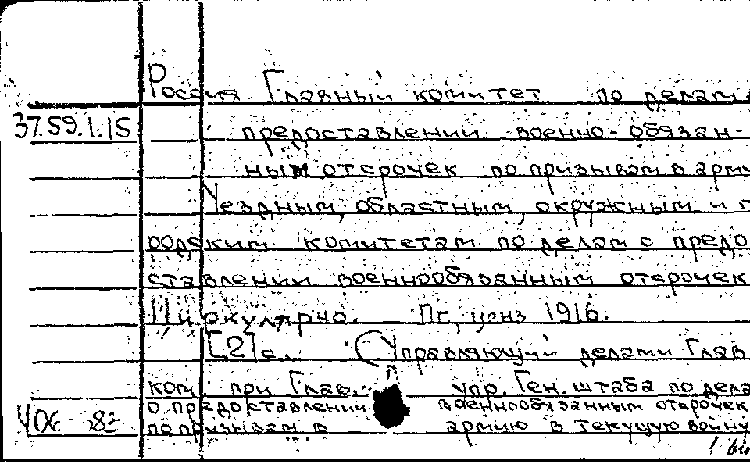 Россия Главный комитет по делам
37.59.1.15
предоставлении военно-обязан-
ным отсрочек по призывам в арми
Уездным, областным, окружным и г
родским комитетам по делам о предо
ставлении военнообязанным отсрочек
Циркулярно. Пг, 1916.
[2]с. (Управляющий делами Глав
ком при Глав. упр. Ген. штаба по дела
о предоставлении военнообязанным отсрочек
по призывам в армию в текущую войну